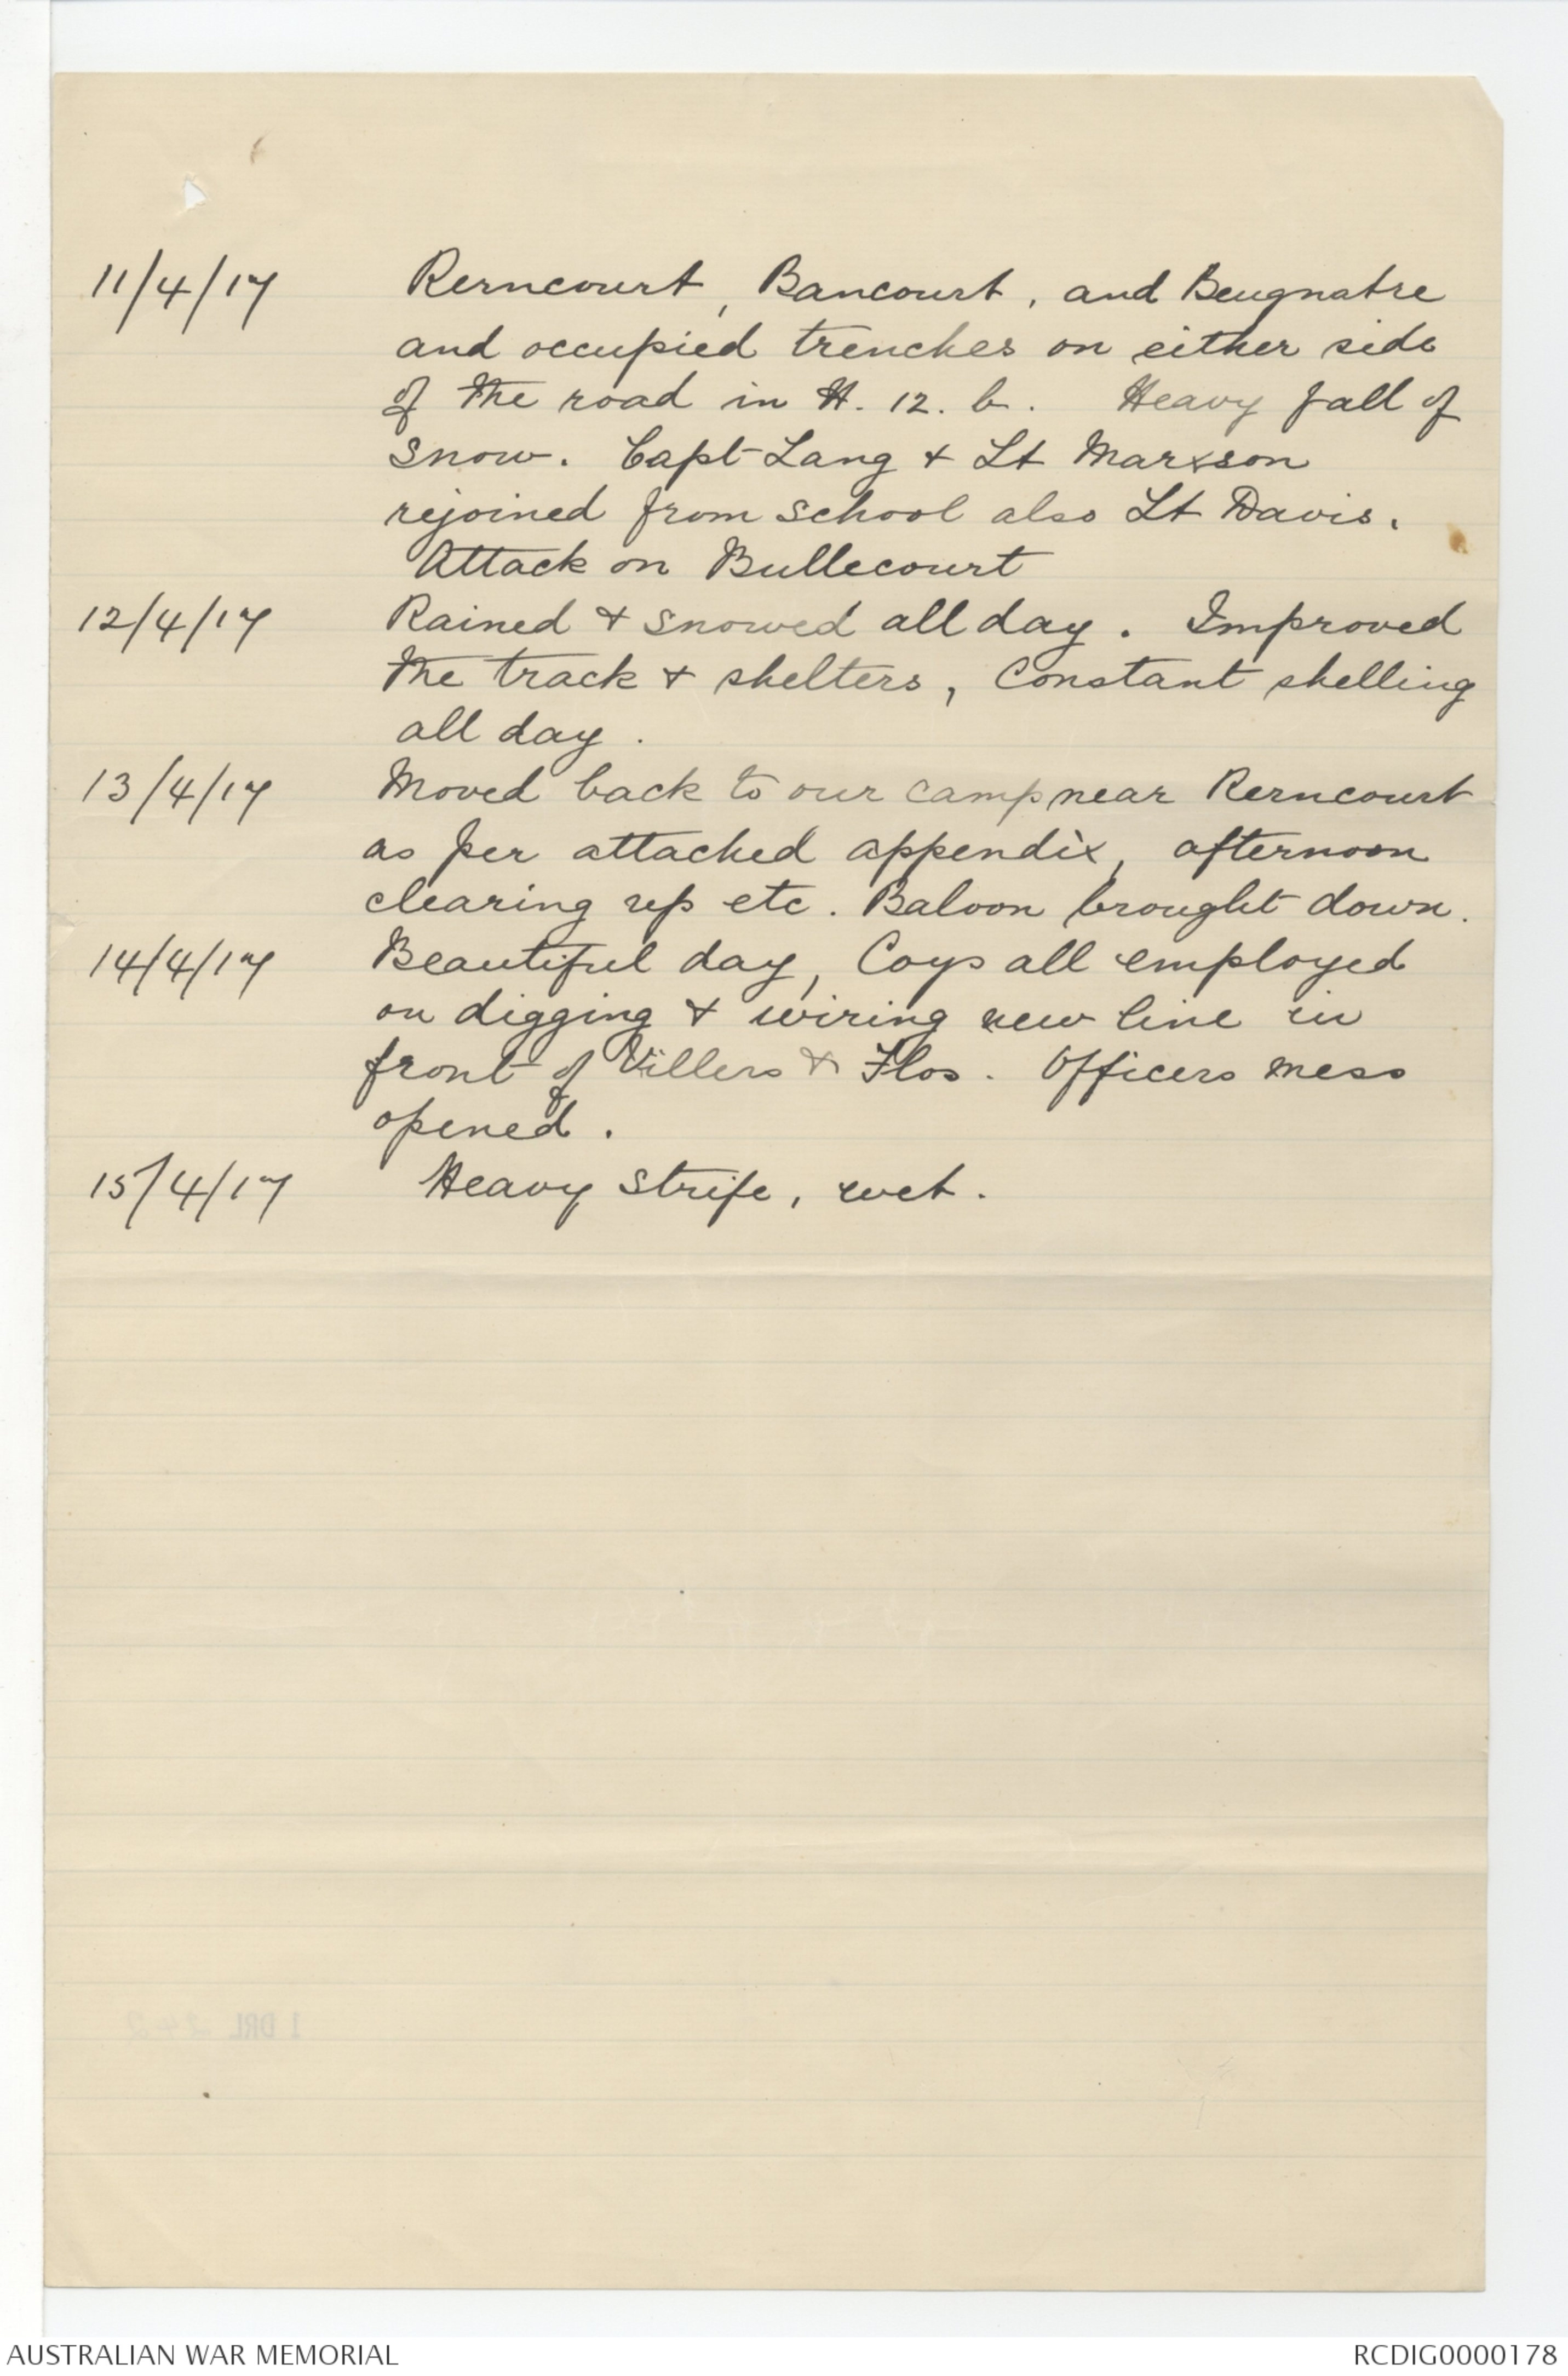 11/4/17 Rerncourt, Bancourt, and Beugnatre
and occupied trenches on either side
of the road in H. 12. b. Heavy fall of
snow. Capt Lang + Lt Marxson
rejoined from school also Lt Davis.
Attack on Bullecourt
12/4/17 Rained + snowed all day. Improved
the track + shelters, Constant shelling
all day.
13/4/17 Moved back to our camp near Rerncourt
as per attached appendix, afternoon
clearing up etc. Baloon brought down.
14/4/17 Beautiful day, Coys all employed
on digging + wiring new line in
front of Villers + Flos. Officers mess
opened.
15/4/17 Heavy strife, wet.
1 DRL
AUSTRALIAN WAR MEMORIAL
RCDIG0000178